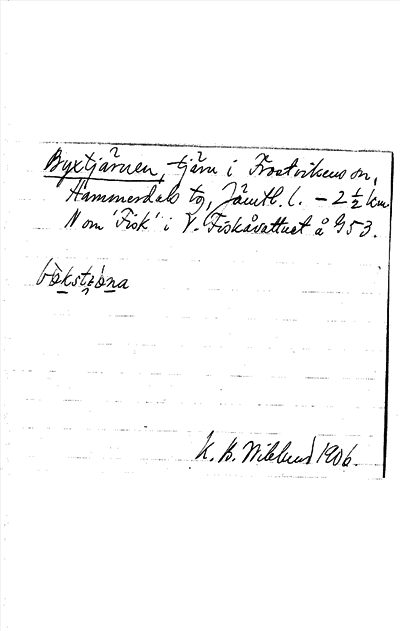 Byxtjärnen, tjärn i Frostvikens sn,
Hammerdals tg, Jämtl. l. – 2 ½ km
N om 'Fisk' i V. Fiskåvattnet å G 53.
K. B. Wiklund 1906.